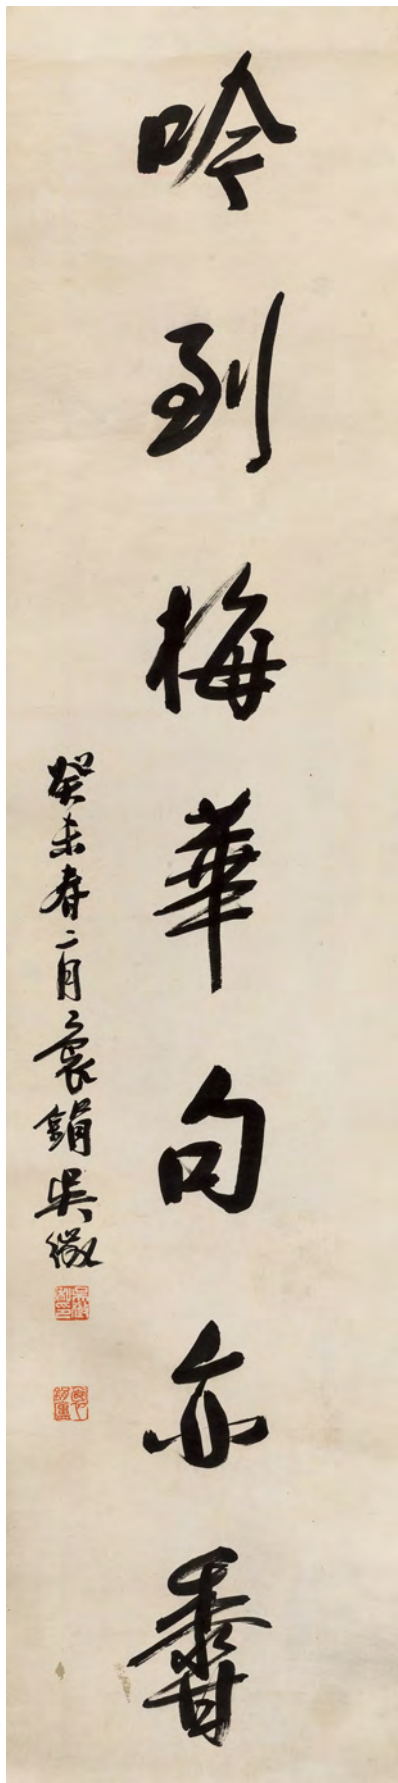 吟到梅華句亦香
癸未春二月袌鋗吳徵